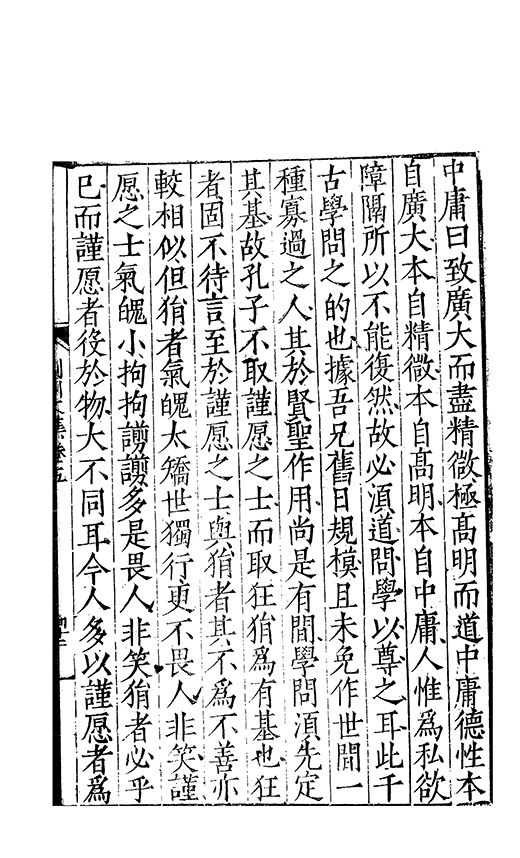 中庸曰致廣大而盡精微極髙明而道中庸德性本
自廣大本自精微本自髙明本自中庸人惟為私欲
障隔所以不能復然故必湏道問學以尊之耳此千
古學問之的也據吾兄舊日規模且未免作世間一
種寡過之人其於賢聖作用尚是有間學問湏先定
其基故孔子不取謹愿之士而取狂狷為有基也狂
者固不待言至於謹愿之士與狷者其不為不善亦
較相似但狷者氣魄太矯世獨行更不畏人非笑謹
愿之士氣魄小拘拘謭謭多是畏人非笑狷者必乎
已而謹愿者役於物大不同耳今人多以謹愿者為
文集卷五